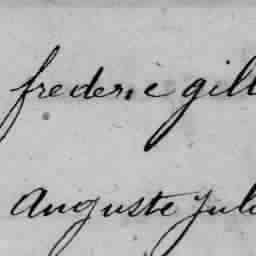 frederic gill
Auguste Jule